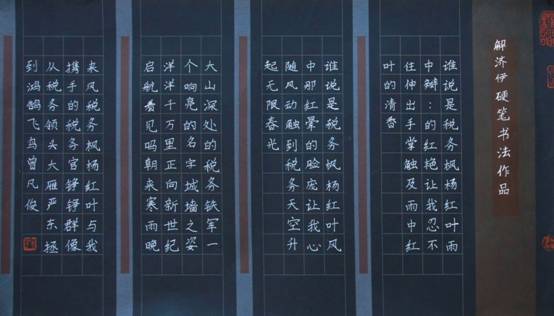 解济伊硬笔书法作品
谁说是税务枫杨红叶雨
中瓣：的红艳让我忍不
住伸出手掌触及雨中红
叶的清香
谁说是税务枫杨红叶风
中那红晕的脸庞让我心
随风动触到税务天空升
起无限春光
大山深处的税务铁军一
个响亮的名字城墙之姿
洋洋千万里正向新世纪
启航看见吗朝来寒雨晚
来风税务枫杨红叶与我
携手的税务官铮铮群像
从税务领头大雁严东拯
到鸿鹄飞鸟曾凡俊